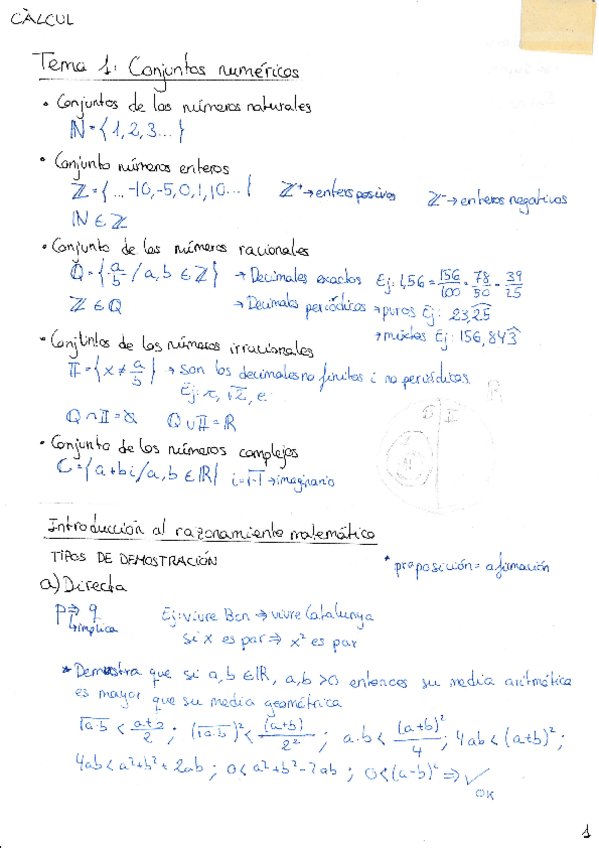 CÀLCUL
Tema 1: Conjuntos numéricos
• Conjuntos de los números naturales
ℕ = {1, 2, 3...}
• Conjunto números enteros
ℤ = {... -10, -5, 0, 1, 10...} ℤ⁺ → enteros positivos ℤ⁻ → enteros negativos
ℕ ∈ ℤ
• Conjunto de los números racionales
ℚ = {a/b / a, b ∈ ℤ} → Decimales exactos Ej: 1,56 = 156/100 = 78/50 = 39/25
ℤ ∈ ℚ → Decimales periódicos → puros Ej: 23,25
→ mixtos Ej: 156,843
• Conjuntos de los números irracionales
𝕀 = {x ≠ a/b} → son los decimales no finitos i no periódicos.
Ej: π, √2, e...
ℚ ∩ 𝕀 = ∅ ℚ ∪ 𝕀 = ℝ
• Conjunto de los números complejos
C = {a + bi / a, b ∈ ℝ} i = √-1 → imaginario
Introducción al razonamiento matemático
TIPOS DE DEMOSTRACIÓN
* proposición = afirmación
a) Directa
P ⇒ q Ej: viure Bcn → viure Catalunya
↳ implica si x es par ⇒ x² es par
* Demostra que si a, b ∈ ℝ, a, b > 0 entonces su media aritmética
es mayor que su media geométrica
√a·b < a+b/2 ; (√a·b)² < (a+b)/2² ; a·b < (a+b)²/4 ; 4ab < (a+b)² ;
4ab < a² + b² + 2ab ; 0 < a² + b² - 2ab ; 0 < (a-b)² ⇒ ✓
OK
1